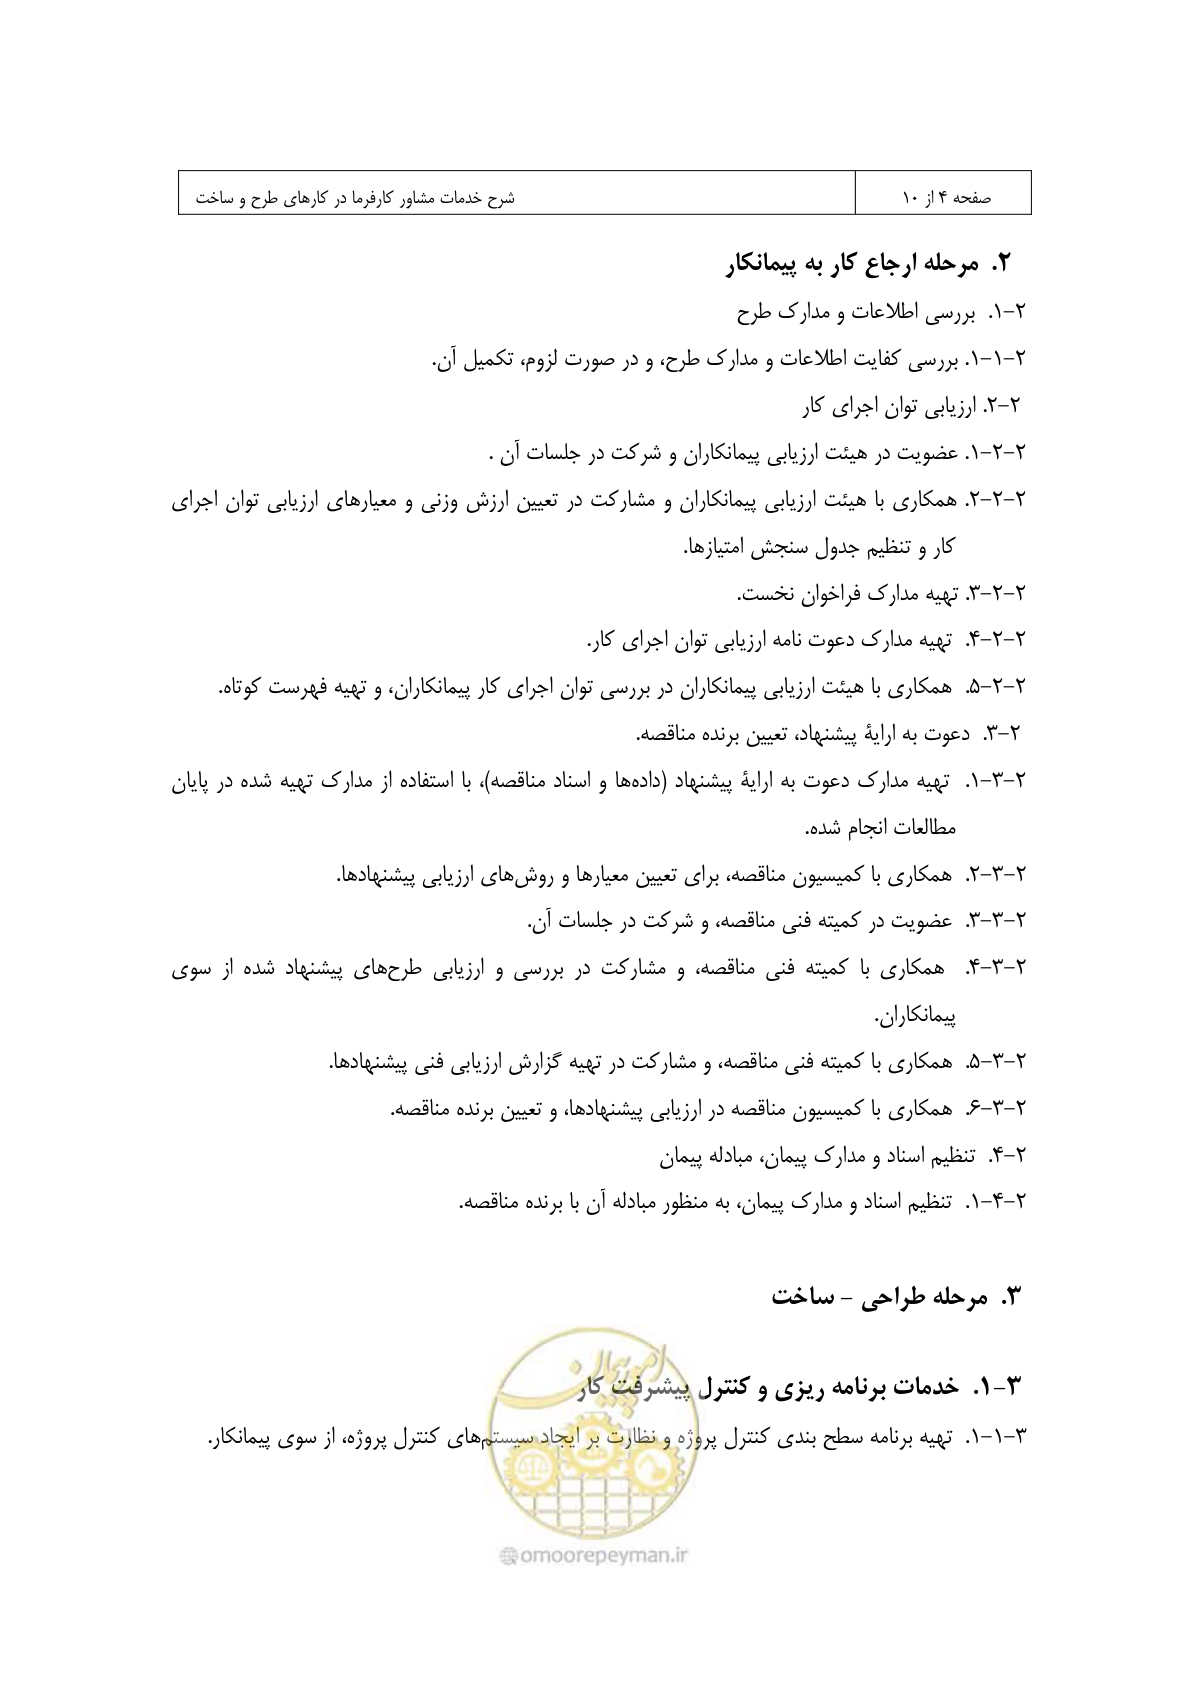 صفحه ۴ از ۱۰
شرح خدمات مشاور کارفرما در کارهای طرح و ساخت
۲. مرحله ارجاع کار به پیمانکار
۲-۱. بررسی اطلاعات و مدارک طرح
۲-۱-۱. بررسی کفایت اطلاعات و مدارک طرح، و در صورت لزوم، تکمیل آن.
۲-۲. ارزیابی توان اجرای کار
۲-۲-۱. عضویت در هیئت ارزیابی پیمانکاران و شرکت در جلسات آن .
۲-۲-۲. همکاری با هیئت ارزیابی پیمانکاران و مشارکت در تعیین ارزش وزنی و معیارهای ارزیابی توان اجرای
کار و تنظیم جدول سنجش امتیازها.
۲-۲-۳. تهیه مدارک فراخوان نخست.
۲-۲-۴. تهیه مدارک دعوت نامه ارزیابی توان اجرای کار.
۲-۲-۵. همکاری با هیئت ارزیابی پیمانکاران در بررسی توان اجرای کار پیمانکاران، و تهیه فهرست کوتاه.
۲-۳. دعوت به ارایهٔ پیشنهاد، تعیین برنده مناقصه.
۲-۳-۱. تهیه مدارک دعوت به ارایهٔ پیشنهاد (داده‌ها و اسناد مناقصه)، با استفاده از مدارک تهیه شده در پایان
مطالعات انجام شده.
۲-۳-۲. همکاری با کمیسیون مناقصه، برای تعیین معیارها و روش‌های ارزیابی پیشنهادها.
۲-۳-۳. عضویت در کمیته فنی مناقصه، و شرکت در جلسات آن.
۲-۳-۴. همکاری با کمیته فنی مناقصه، و مشارکت در بررسی و ارزیابی طرح‌های پیشنهاد شده از سوی
پیمانکاران.
۲-۳-۵. همکاری با کمیته فنی مناقصه، و مشارکت در تهیه گزارش ارزیابی فنی پیشنهادها.
۲-۳-۶. همکاری با کمیسیون مناقصه در ارزیابی پیشنهادها، و تعیین برنده مناقصه.
۲-۴. تنظیم اسناد و مدارک پیمان، مبادله پیمان
۲-۴-۱. تنظیم اسناد و مدارک پیمان، به منظور مبادله آن با برنده مناقصه.
۳. مرحله طراحی – ساخت
۳-۱. خدمات برنامه ریزی و کنترل پیشرفت کار
۳-۱-۱. تهیه برنامه سطح بندی کنترل پروژه و نظارت بر ایجاد سیستم‌های کنترل پروژه، از سوی پیمانکار.
امور پیمان
omoorepeyman.ir